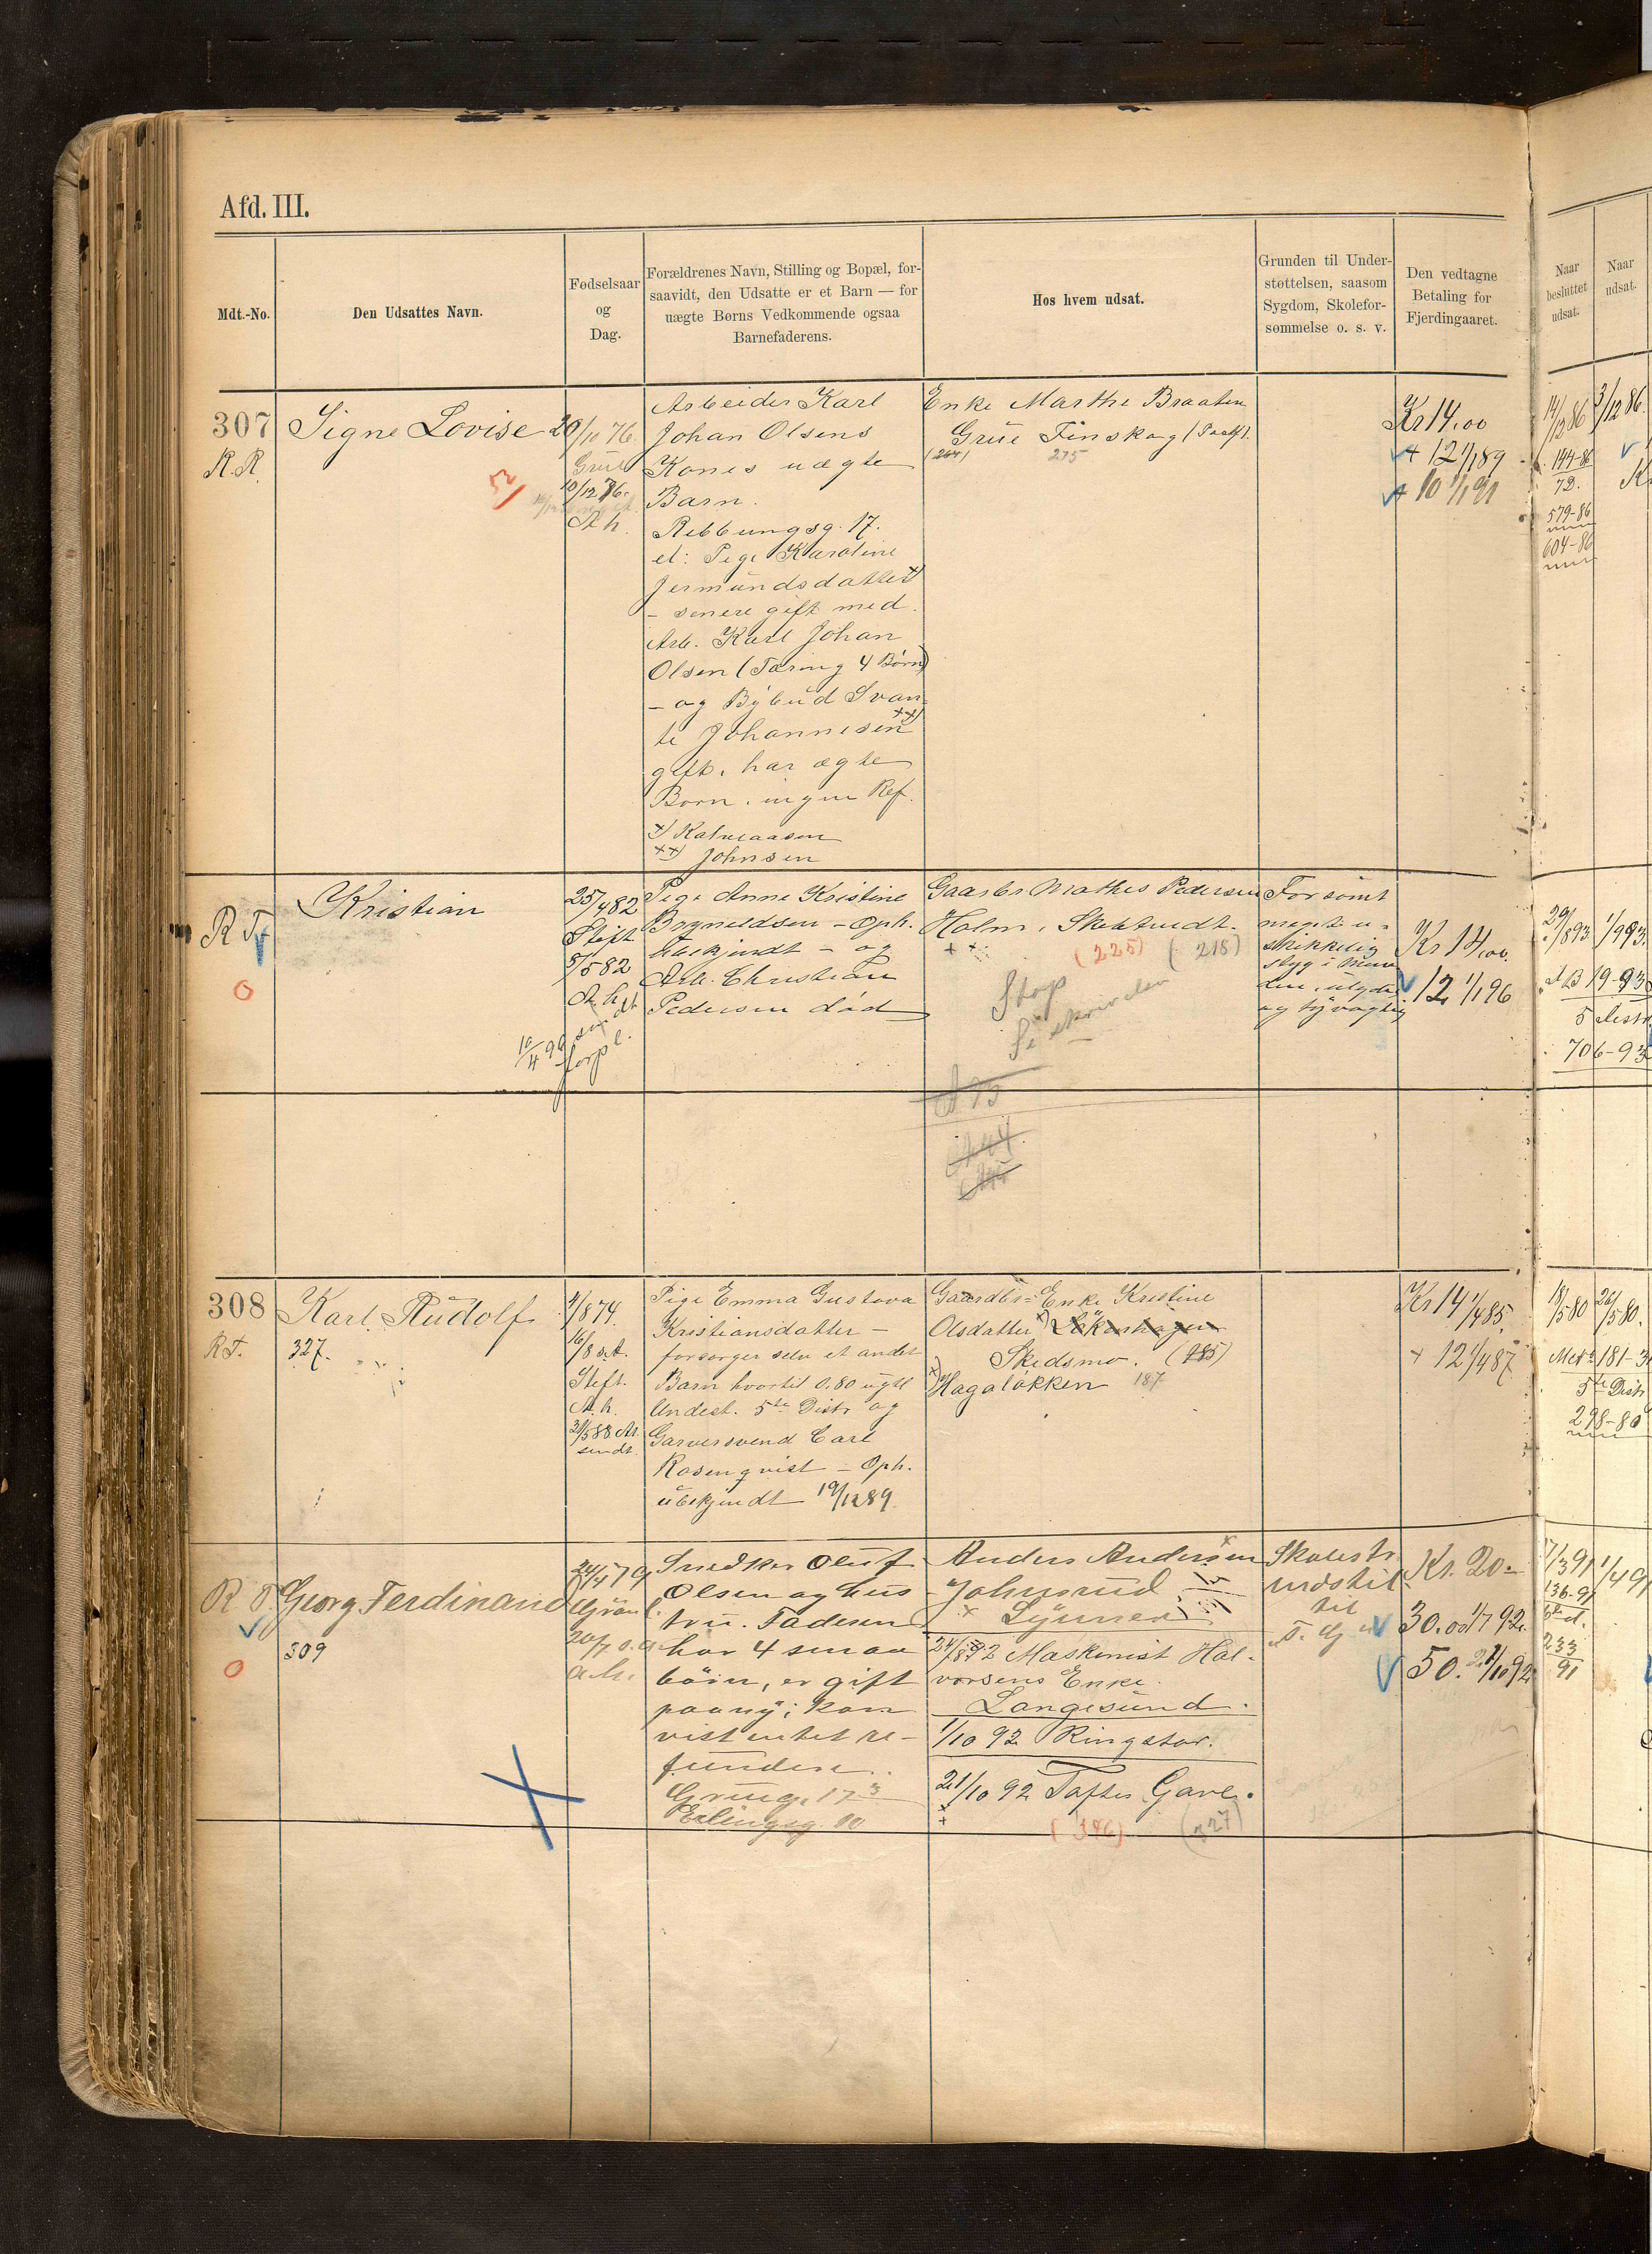 Afd. III.
Mdt.-No.
Den Udsattes Navn.
Fødselsaar
og
Dag.
Forældrenes Navn, Stilling og Bopæl, for-
saavidt, den Udsatte er et Barn — for
uægte Børns Vedkommende ogsaa
Barnefaderens.
Hos hvem udsat.
Grunden til Under-
støttelsen, saasom
Sygdom, Skolefor-
sømmelse o. s. v.
Den vedtagne
Betaling for
Fjerdingaaret.
Naar
besluttet
udsat.
Naar
udsat.
307
R.R.
Signe Lovise
29/10 76.
Grue
10/12 76.
A.h.
Arbeider Karl
Johan Olsens
Kones uægte
Barn.
Ribbungsg. 17.
el: Pige Karoline
Jermundsdatter x)
- senere gift med
Arb. Karl Johan
Olsen (Tæring 4 Børn)
- og Bybud Svan-
te Johannesen xx)
gift, har ægte
Born. ingen Ref.
x) Kalneaasen
xx) Johnsen
Enke Marthe Braaten
Grue Finskog
(264)
275
Kr 14.00
+ 12 1/1 89
+ 10 1/1 91
14/12 86
3/12 86.
144-86
72.
579-86
604-86
R T.
Kristian
25/4 82
Stift
8/5 82
A. h.
10/4 96
Pige Anne Kristine
Bryneldsen - Oph.
Ubekjendt - og
Arb. Christian
Pedersen død
Gaardbr Mathes Pedersen
Holm, Skebtvedt.
(225)
(218)
Stop
Se skrivelse
Forsømt
meget u-
skikkelig
styg i Mun-
den, ulydig
og tyvagtig
Kr 14,00.
12 1/1 96
29/8 93
1/9 93
A B 19-93
5
706-93
308
R T.
Karl Rudolf
327.
4/8 74.
16/8 s.A.
Stift.
A.h.
21/5 88 At.
sendt.
Pige Emma Gustava
Kristiansdatter -
forsørger selv et andet
Barn hvortil 0.80 ugtl
Underst. 5te Distr og
Garversvend Carl
Rosenqvist - Oph.
ubekjendt 19/12 89
Gaardbr= Enke Kristine
Olsdatter x) Lökenhagen
Skedsmo. (185)
x) Hagaløkken 187
Kr 14 1/4 85.
+ 12 1/4 87
18/5 80
26/5 80.
181-3
5te Distr
298-80
R. T.
Georg Ferdinand
309
24/4 79
Grönl.
20/7 s.a.
a.h.
Snedker Oluf
Olsen og hus
tru. Faderen
har 4 smaa
börn, er gift
paany; kan
vist intet re-
fundere.
Grüng. 17 3
Erlingsg. 10
Anders Andersen x
Johnsrud
x Lunner
24/8 92 Maskinist Hal-
vorsens Enke.
Langesund.
1/10 92 Ringstor.
21/10 92 Toftes Gave.
(346)
(327)
Skolestr
indstil.
til
"T. G."
Kr. 20=
30.00 1/7 92.
50. 21/10 92
7/3 91
1/4 91
136-91
6te d.
233
91